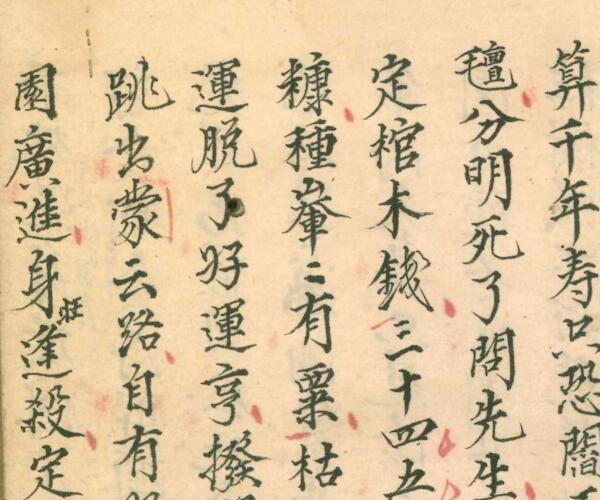 算千年寿只恐閻
氊分明死了問先生
定棺木錢三十四五
糠種𪨶〻有粟枯
運脱了好運亨撥
跳出蒙云路自有
園廣進身旺逢殺定